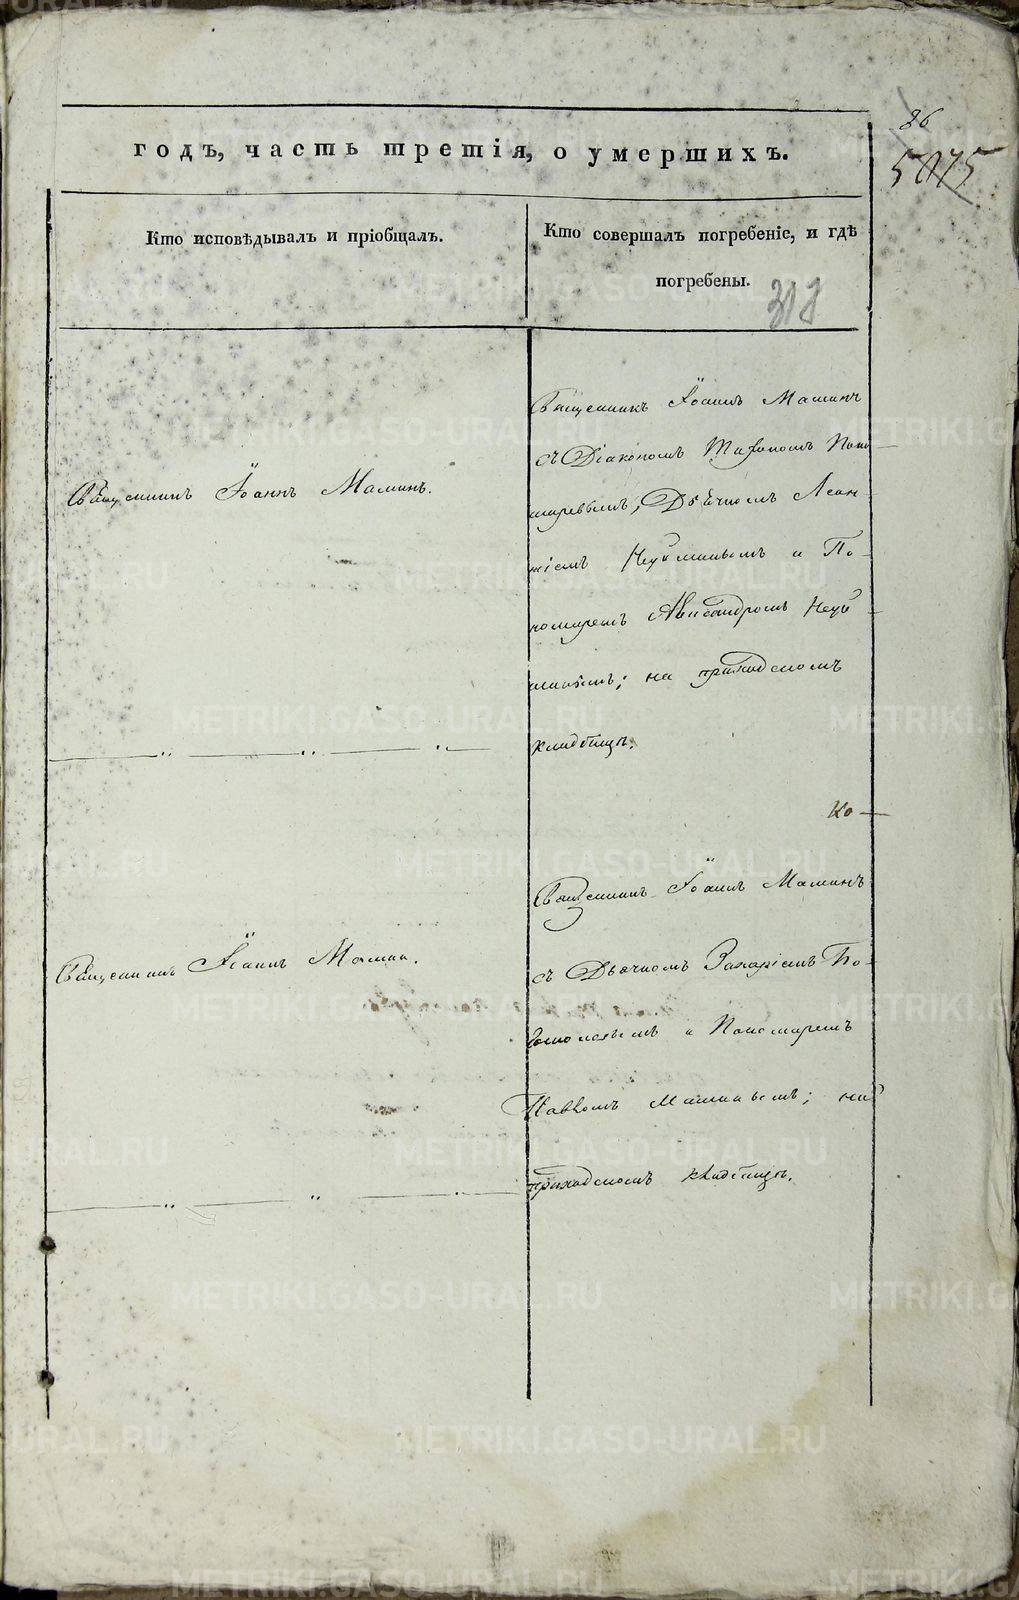 86
5075
годъ, часть третія, о умершихъ.
Кто исповѣдывалъ и пріобщалъ.
Кто совершалъ погребеніе, и гдѣ
погребены.
318
Священникъ Іоаннъ Маминъ
съ Діакономъ Тифономъ Поно-
маревымъ, Дьячкомъ
и По-
номаремъ Александромъ
на приходскомъ
кладбищѣ.
Священникъ Іоаннъ Маминъ.
Ко-
Священникъ Іоаннъ Маминъ
съ Дьячкомъ Захаріемъ Бо-
гомоловымъ и Пономаремъ
Павломъ Маминымъ; на
приходскомъ кладбищѣ.
Священникъ Іоаннъ Маминъ.
METRIKI.GASO-URAL.RU